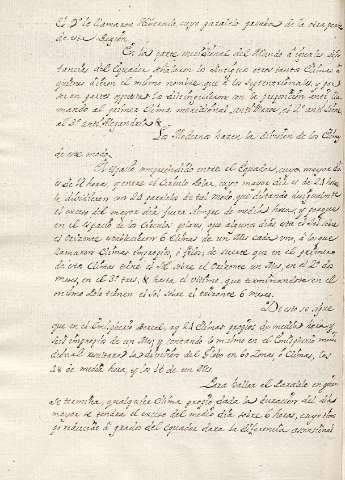 El 7º le llamaron
de esta Region.
En la parte meridional del Mundo á iguales dis-
tancias del Equador señalaron los antiguos otros tantos Climas á
quienes dieron el mismo nombre que á los Septentrionales, y por
ser en partes opuestas la distinguieron con la preposicion anti lla-
mando al primero Clima meridional anti Meroe, el 2º anti Siene
al 3º anti Alejandria &.
Los Modernos hacen la division de los Climas
de este modo.
El espacio comprendido entre el Equador, cuyo mayor dia
es de 12 horas, y entre el Circulo Polar, cuyo mayor dia es de 24 horas
le dividieron con 23 paralelos de tal modo, que distando
el exceso del mayor dia, fuera siempre de media hora, y porque
en el espacio de los Circulos polares, que algunos dias esta el Sol sobre
el Orizonte establecieron 6 Climas de un Mes cada uno, á los que
llamaron Climas impropios, ó frios; de suerte que en el primero
de esta Climas esta el Sol sobre el Orizonte un Mes, en el 2º dos
meses, en el 3º tres, & hasta el ultimo, que terminandose en el
mismo Polo tienen el Sol sobre el orizonte 6 meses.
De esto se sigue
que en el Emisferio Boreal, ay 24 Climas propios de media hora, y
seis impropios de un Mes, y contando lo mismo en el Emisferio meri-
dional la division del Globo en 60 Zonas, ó Climas, los
48 de media hora, y los 12 de un Mes.
Para hallar el Paralelo en quien
se termina, qualquier Clima propio dada la duracion del dia
mayor se tendrá el exceso del medio dia sobre 6 horas, cuyo tiem-
po reducido á grados del Equador dara la diferencia ascensional